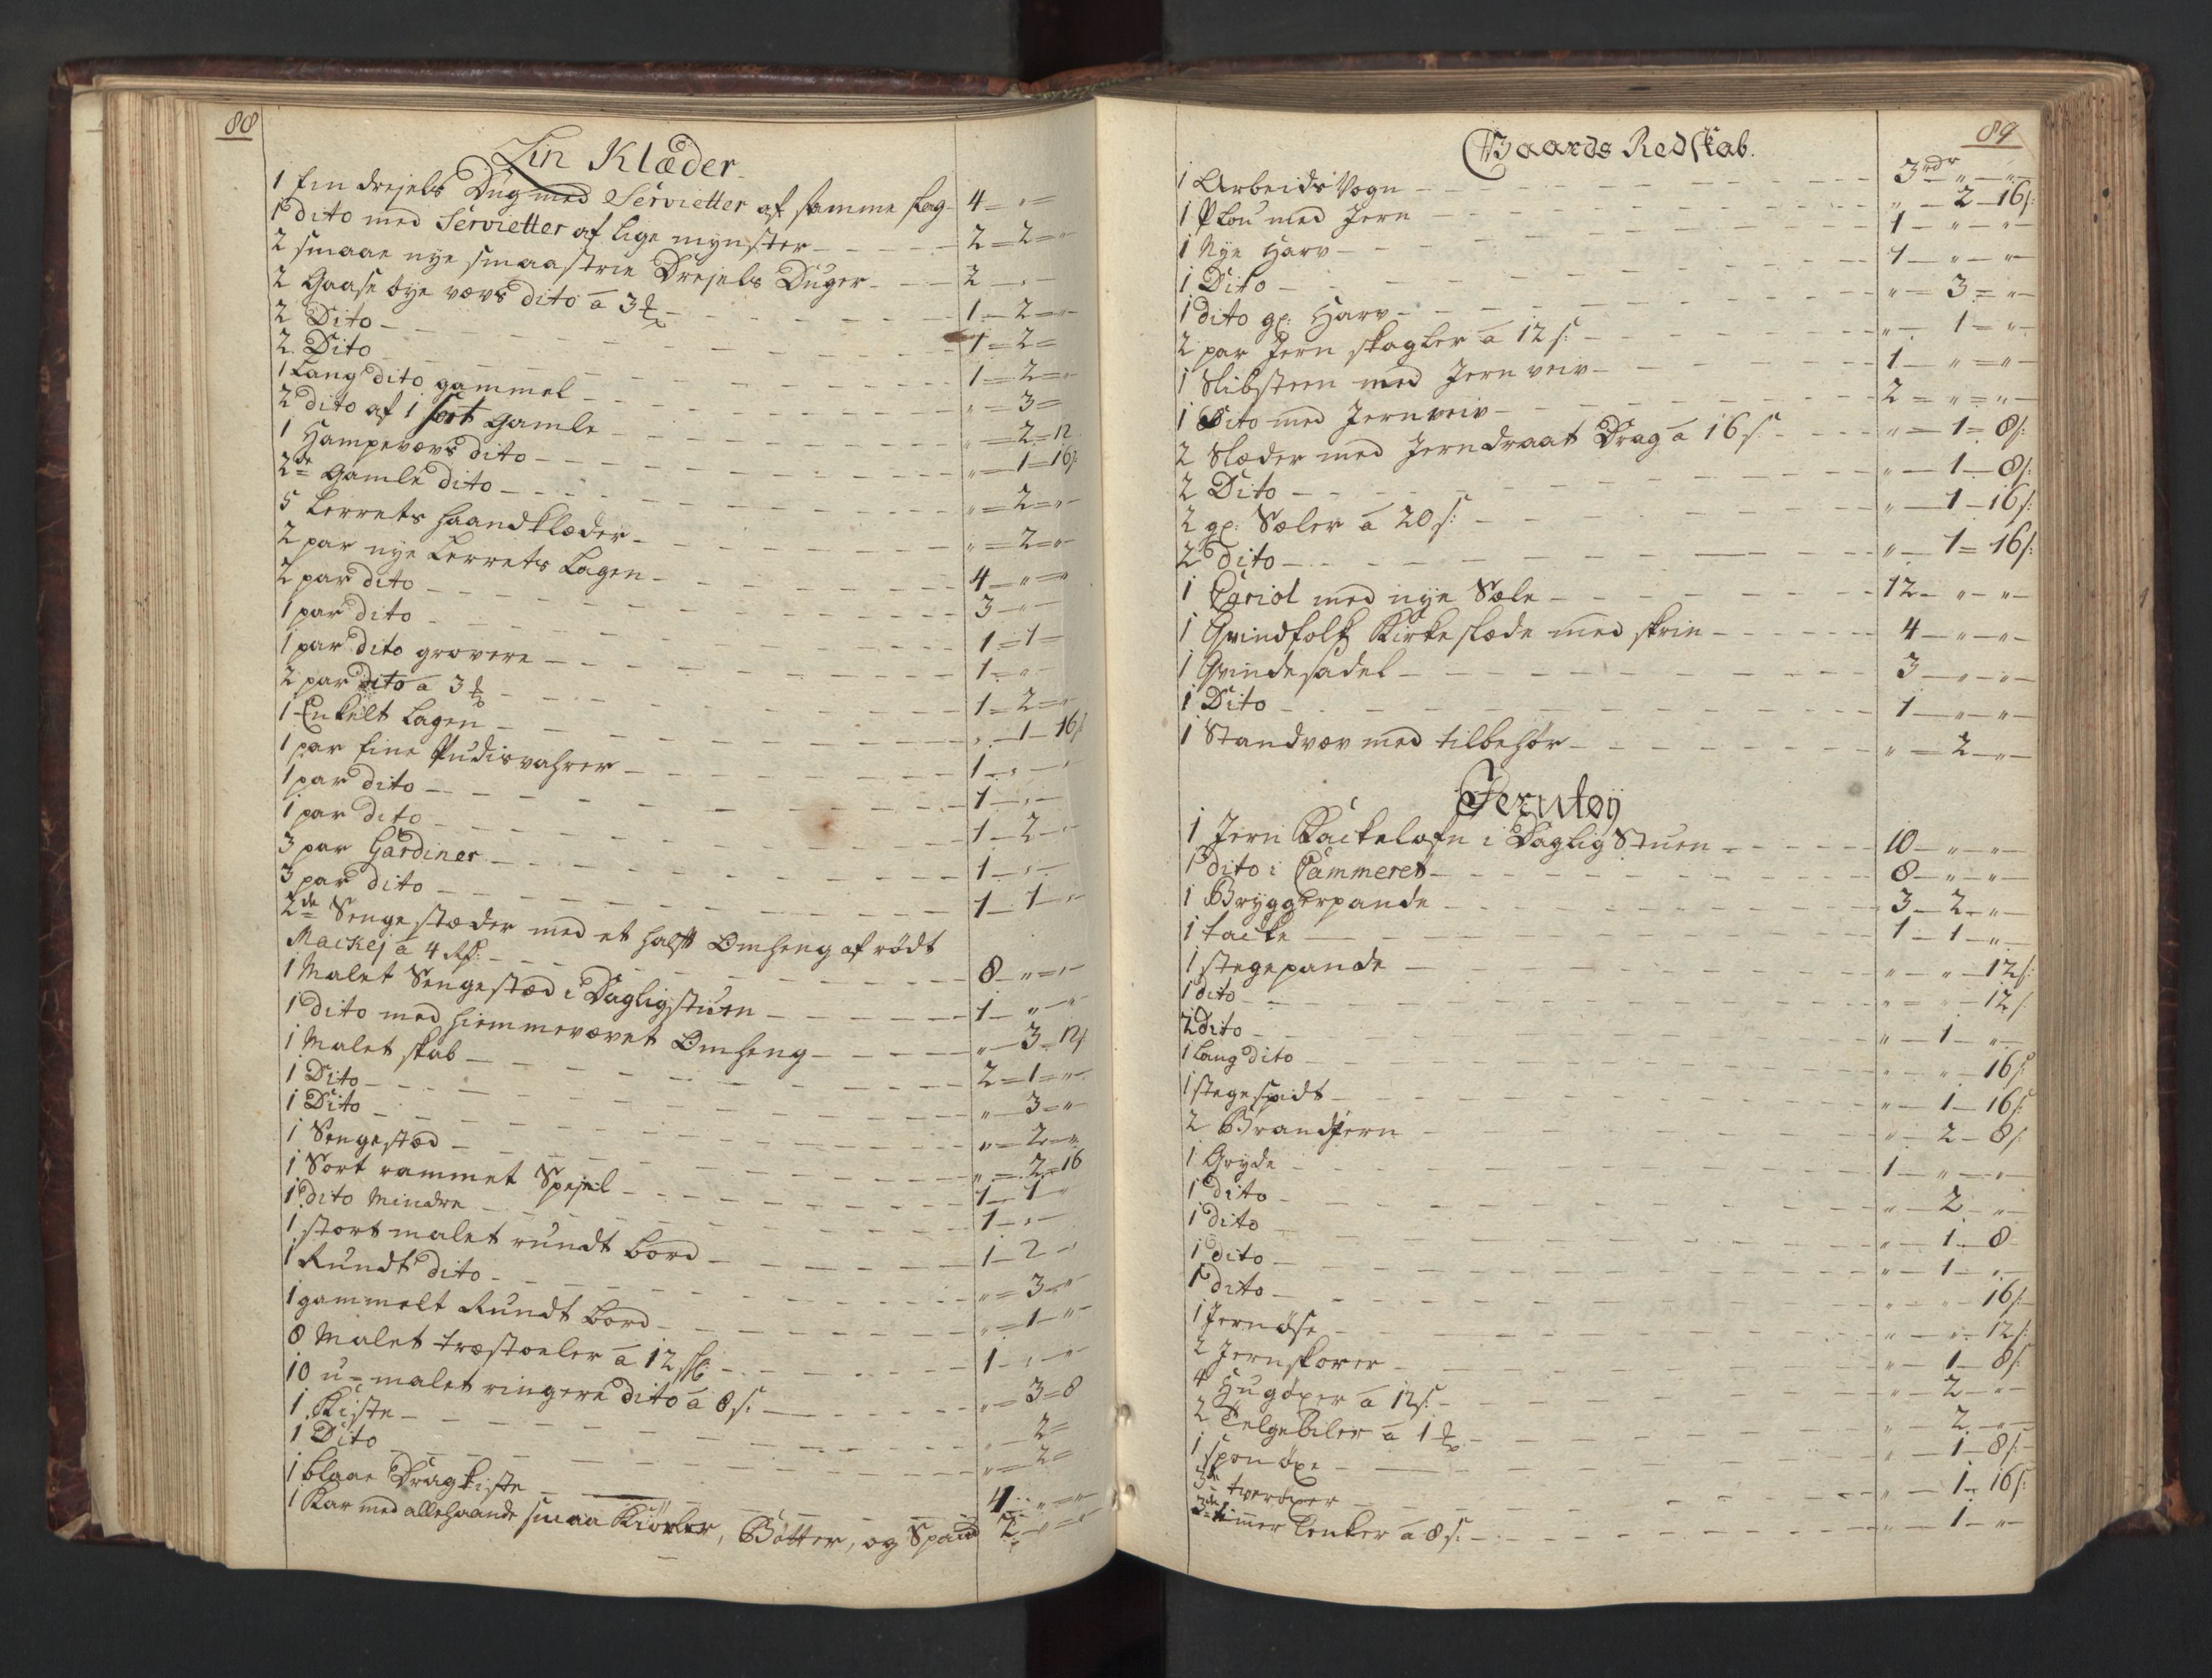 88
Lin Klæder
1 fin drejels Dug med Servietter af samme slag - 4 - " -
1 dito med Servietter af lige mynster - 2 - 2 - "
2 smaae nye smaastrie Drejels Duger - 2 - " -
2 Gaase øye vævs dito a 3 - 1 - 2 - "
2 Dito - 1 - 2 -
2 Dito - 1 - 2 - "
1 Lang dito gammel - " - 3 -
2 dito af 1 sort gamle - " - 2 - 12
1 Hampevævs dito - " - 1 - 16 s:
2de Gamle dito - " - 2 - "
5 Lerrets haandklæder - " - 2 - "
2 par nye Lerrets Lagen - 4 - " - "
2 par dito - 3 - " -
1 par dito - 1 - 1 -
1 par dito grovere - 1 - " -
2 par dito a 3 - 1 - 2 - "
1 Enkelt Lagen - " - 1 - 16 s:
1 par fine Pudisvahrer - 1 - " - "
1 par dito - 1 - " -
1 par dito - 1 - 2 - "
3 par Gardiner - 1 - " -
3 par dito - 1 - 1 - "
2de Senge stæder med et halft Omheng af rødt
Mackej a 4 Rd: - 8 - " - "
1 Malet Sengestæd i Dagligstuen - 1 - " - "
1 dito med hiemmevævet Omheng - " - 3 - 12 s
1 Malet skab - 2 - 1 - "
1 Dito - " - 3 - "
1 Dito - " - 2 - "
1 Sengestæd - " - 2 - 16
1 Sort rammet Spejel - 1 - 1 - "
1 dito Mindre - 1 - " -
1 stort malet rundt Bord - 1 - 2 - "
1 Rundt dito - " - 3 - "
1 gammelt Rundt Bord - " - 1 - "
8 Malet træstoeler a 12 sk: - 1 - " - "
10 u-malet ringere dito a 8 s: - " - 3 - 8
1 Kiste - " - 2 -
1 Dito - " - 2 -
1 blaae Dragkiste - 4 - " - "
1 Kar med allehaande smaa Kiørler, Bøtter, og Spand 2 - " - "
89
Gaards Redskab.
1 Arbeids Vogn - 3 rdr " - "
1 Plou med Jern - " - 2 - 16 s:
1 Nye Harv - 1 - " - "
1 Dito - 1 - " - "
1 dito gl: Harv - " - 3 - "
2 par Jern skagler a 12 s: - " - 1 - "
1 Slibsteen med Jern veiv - 1 - " - "
1 Dito med Jernveiv - 2 - " - "
2 Slæder med Jerndraat Drag a 16 s: - " - 1 - 8 s:
2 Dito - " - 1 - 8 s:
2 gl: Sæler a 20 s: - " - 1 - 16 s:
2 dito - " - 1 - 16 s:
1 Cariol med nye Sæle - 12 - " - "
1 Qvindfolk Kirkeslæde med skrin - 4 - " - "
1 Qvindesadel - 3 - " - "
1 Dito - 1 - " - "
1 Standvæv med tilbehør - " - 2 - "
Jerntøy
1 Jern Kackelofn i Daglig Stuen - 10 - " - "
1 dito i Cammeret - 8 - " - "
1 Bryggerpande - 3 - 2 - "
1 tacke - 1 - 1 - "
1 stegepande - " - " - 12 s:
1 dito - " - " - 12 s
2 dito - " - 1 - "
1 lang dito - " - " - 16 s:
1 stegespidt - " - 1 - 16 s:
2 Brandjern - " - 2 - 8 s:
1 Gryde - 1 - " - "
1 dito - " - 2 - "
1 dito - " - 1 - 8
1 dito - " - 1 - "
1 dito - " - " - 16 s:
1 Jernøse - " - " - 12 s:
2 Jernskorer - " - 1 - 8 s:
4 Hugøxer a 12 s: - " - 2 - "
2 Telgebiler a 1 - " - 2 - "
1 spon øxe - " - 1 - 8 s:
3de tverøxer - " - 1 - 16 s:
3de timer Lenker a 8 s: - " - 1 - "